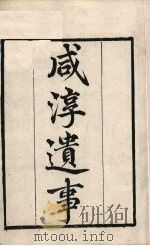 咸淳遺事
www.mtoou.info